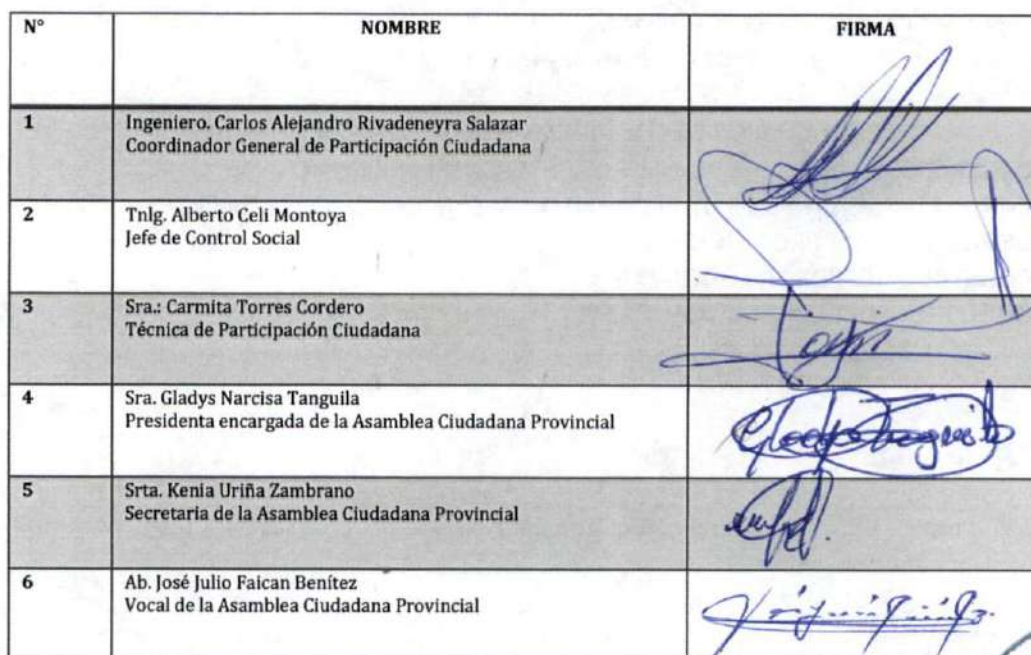 N° NOMBRE FIRMA
1 Ingeniero. Carlos Alejandro Rivadeneyra Salazar
Coordinador General de Participación Ciudadana
2 Tnlg. Alberto Celi Montoya
Jefe de Control Social
3 Sra.: Carmita Torres Cordero
Técnica de Participación Ciudadana
4 Sra. Gladys Narcisa Tanguila
Presidenta encargada de la Asamblea Ciudadana Provincial
5 Srta. Kenia Uriña Zambrano
Secretaria de la Asamblea Ciudadana Provincial
6 Ab. José Julio Faican Benítez
Vocal de la Asamblea Ciudadana Provincial